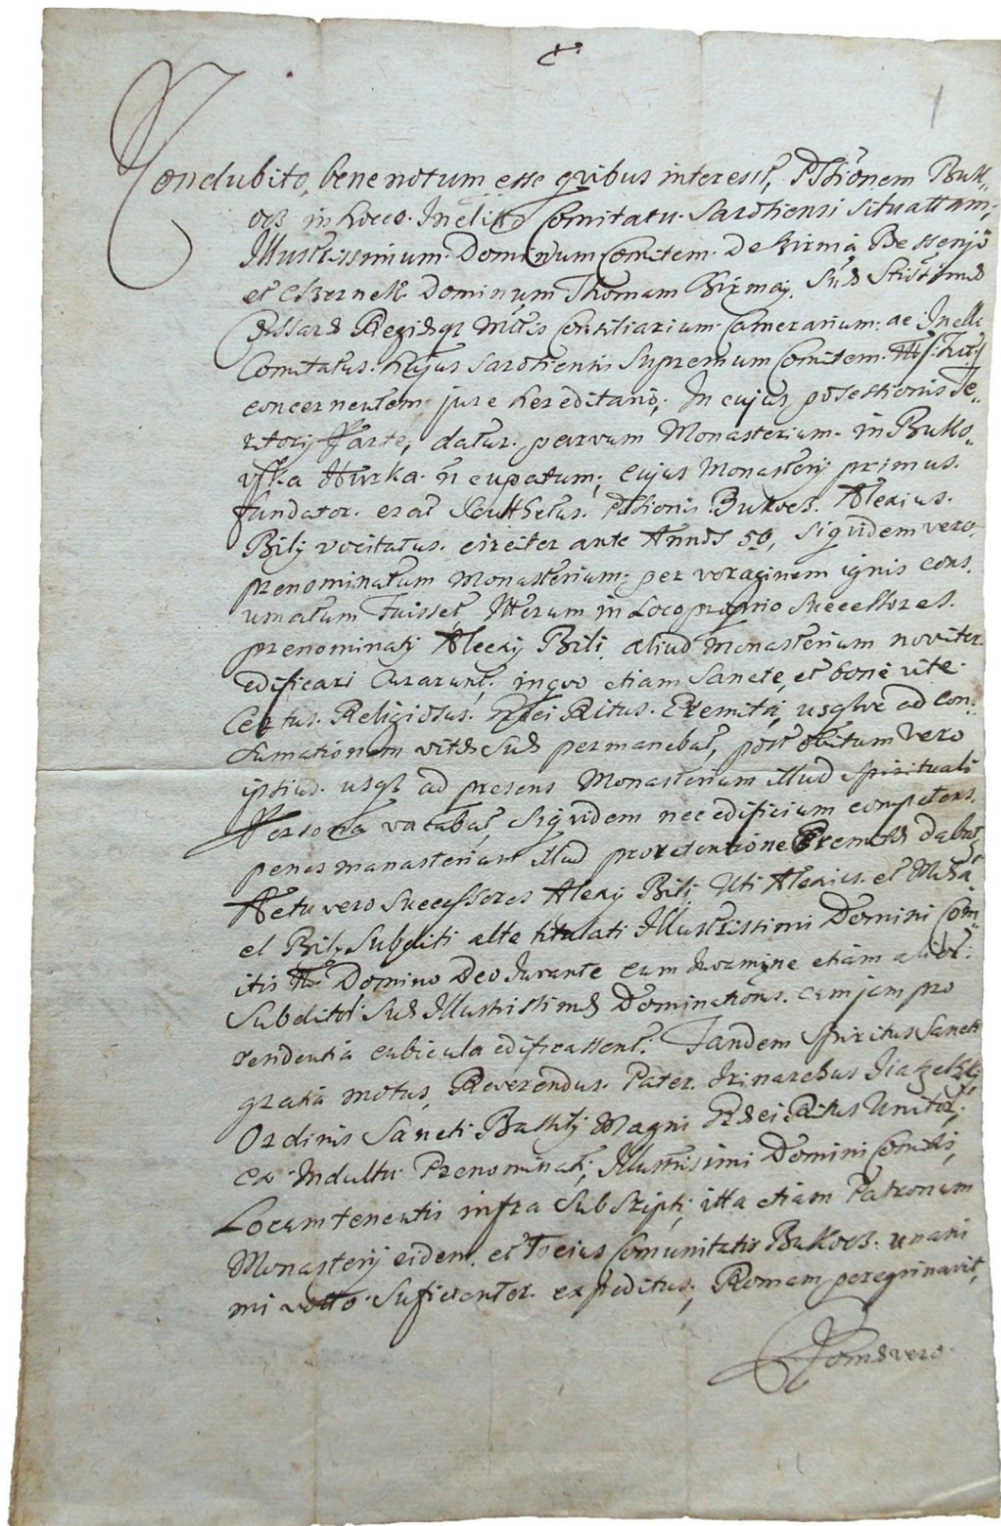 1
Condubito, bene notum esse quibus interest, Pssionem Buk„
ocz in Locco Inclito Comitatu Sarosiensi situattam,
Illustrissimum Dominum Comitem De Szirma Bessenjö
et Csernek Dominum Thomam Szirmaj,
Regiæqz Mttis Consiliarium Camerarium, ac Inclti
Comitatus hujus Sarosiensis Supremum Comitem
concernentem jure hereditario, In cujus possessionis Te„
rritorij Parte, datur parvum Monasterium in Buko„
vska Hurka n̄cupatum, cujus Monasterij primus
fundator erat Sculthetus Pssionis Bukocz Alexius
Bilij vocitatus circiter ante Annos 50, siquidem vero
prenominatum Monasterium per voraginem ignis cons„
umatum fuisset, Iterum in Loco proprio Successores
prenominatj Alexij Bili aliud Monasterium noviter
edificari Curarunt, in quo etiam Sancte, et bone vite
Certus Religiosus Græci Ritus Eremita, usqve ad Con„
sumationem vitæ Suæ permanebat, post obitum vero
ipsius usqz ad presens Monasterium illud Spirituali
Persona vacabat, Siquidem nec edificium competens
penes manasterium illud pro retentione Eremitæ dabat„
Actu vero Successores Alexij Bilj Uti Alexius et Misa„
el Bily Subditi alte titulati Illustrissimi Domini Com„
itis Domino Deo Iuvante cum Iuvamine etiam alior:
Subditor Suæ Illustrissimæ Dominationis cum jam pro
residentia cubicula edificassent. Tandem Spiritus Sancti
gratia motus, Reverendus Pater Irinarchus
Ordinis Sancti Basilij Magni Græci Ritus Unitor,
Ex Indultu Prenominati, Illustrissimi Domini Comitis,
Locumtenentis infra Subscripti, itta etiam Patronum
Monasterij eidem et Tocius Comunitatis Bukocz unani
mi votto Suficienter expeditus, Romam peregrinavit,
Romævero